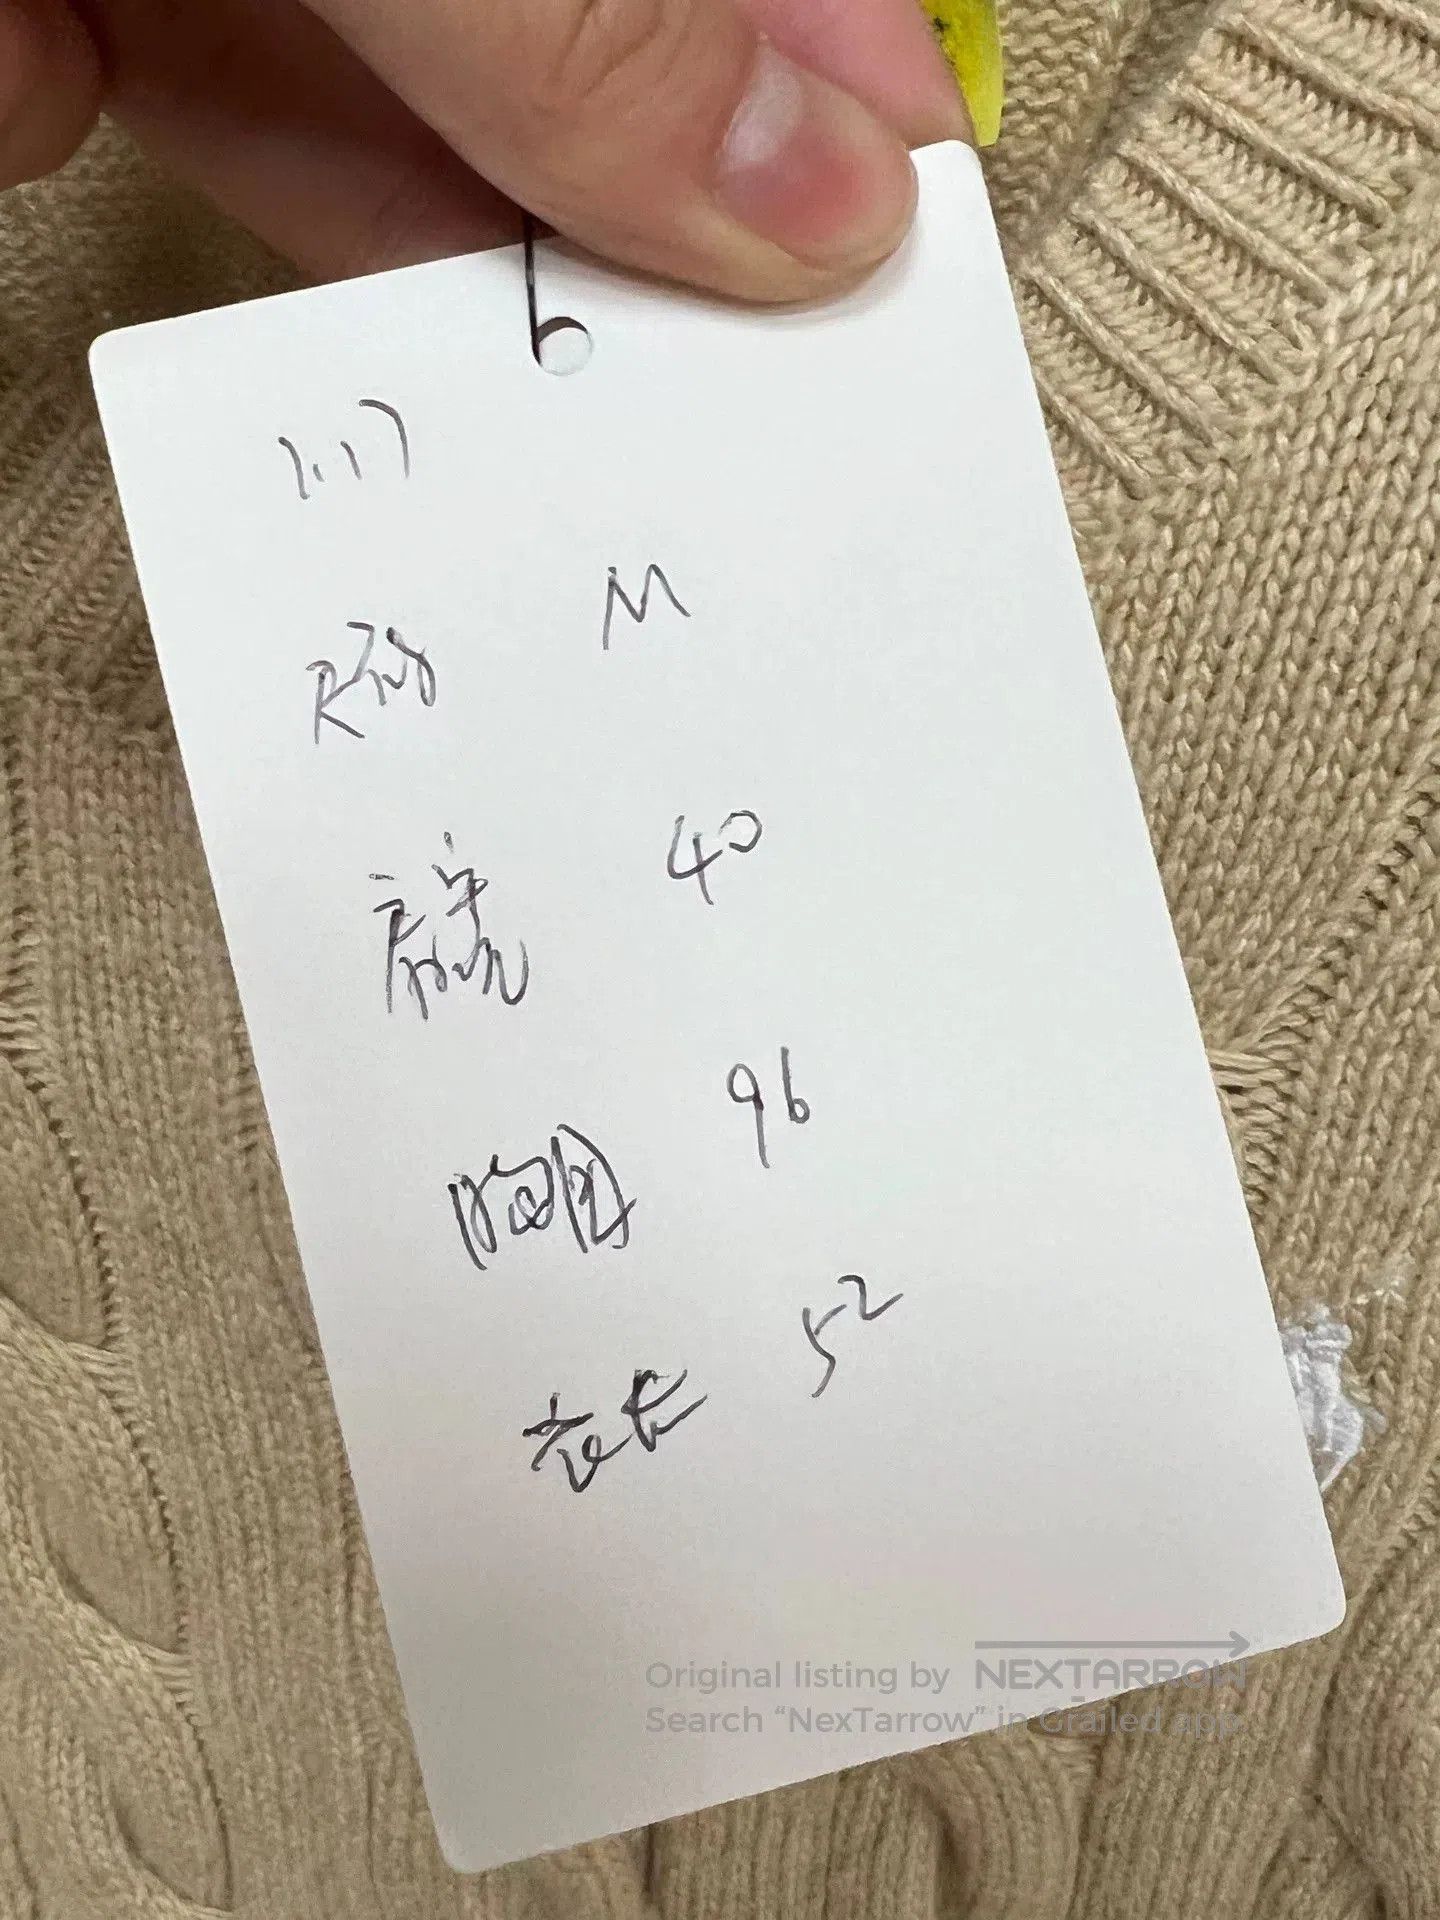 1.17
尺码 M
肩宽 40
胸围 96
衣长 52
Original listing by NEXTARROW
Search “NexTarrow” in Grailed app